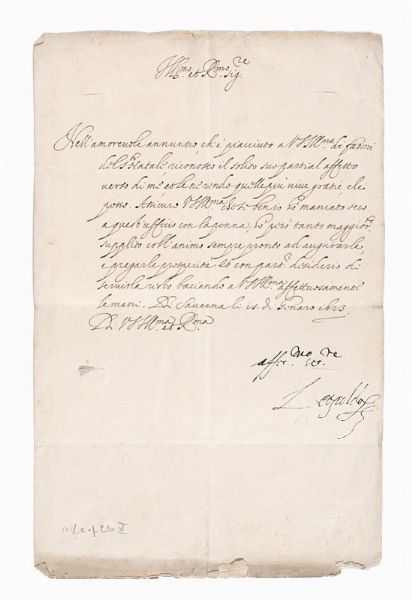 Ill.mo et R.mo Sig.re
Nell'amorevole annuntio ch'è piaciuto a V S Ill.ma di farmi
del S. Natale riconosco il solito suo partial affetto
verso di me et le ne rendo quelle più vive gratie che
posso. Assicuro V S Ill.ma che se bene ho mancato seco
a quest'uffitio con la penna, ho però tanto maggior.te
supplito coll'animo sempre pronto ad augurarle,
e pregarle prosperità. Et con part.e desiderio di
servirla resto baciando li V S Ill.ma affettuosamente
le mani. Di li 15 di Genaro
D V S Ill.ma et R.ma
aff.mo